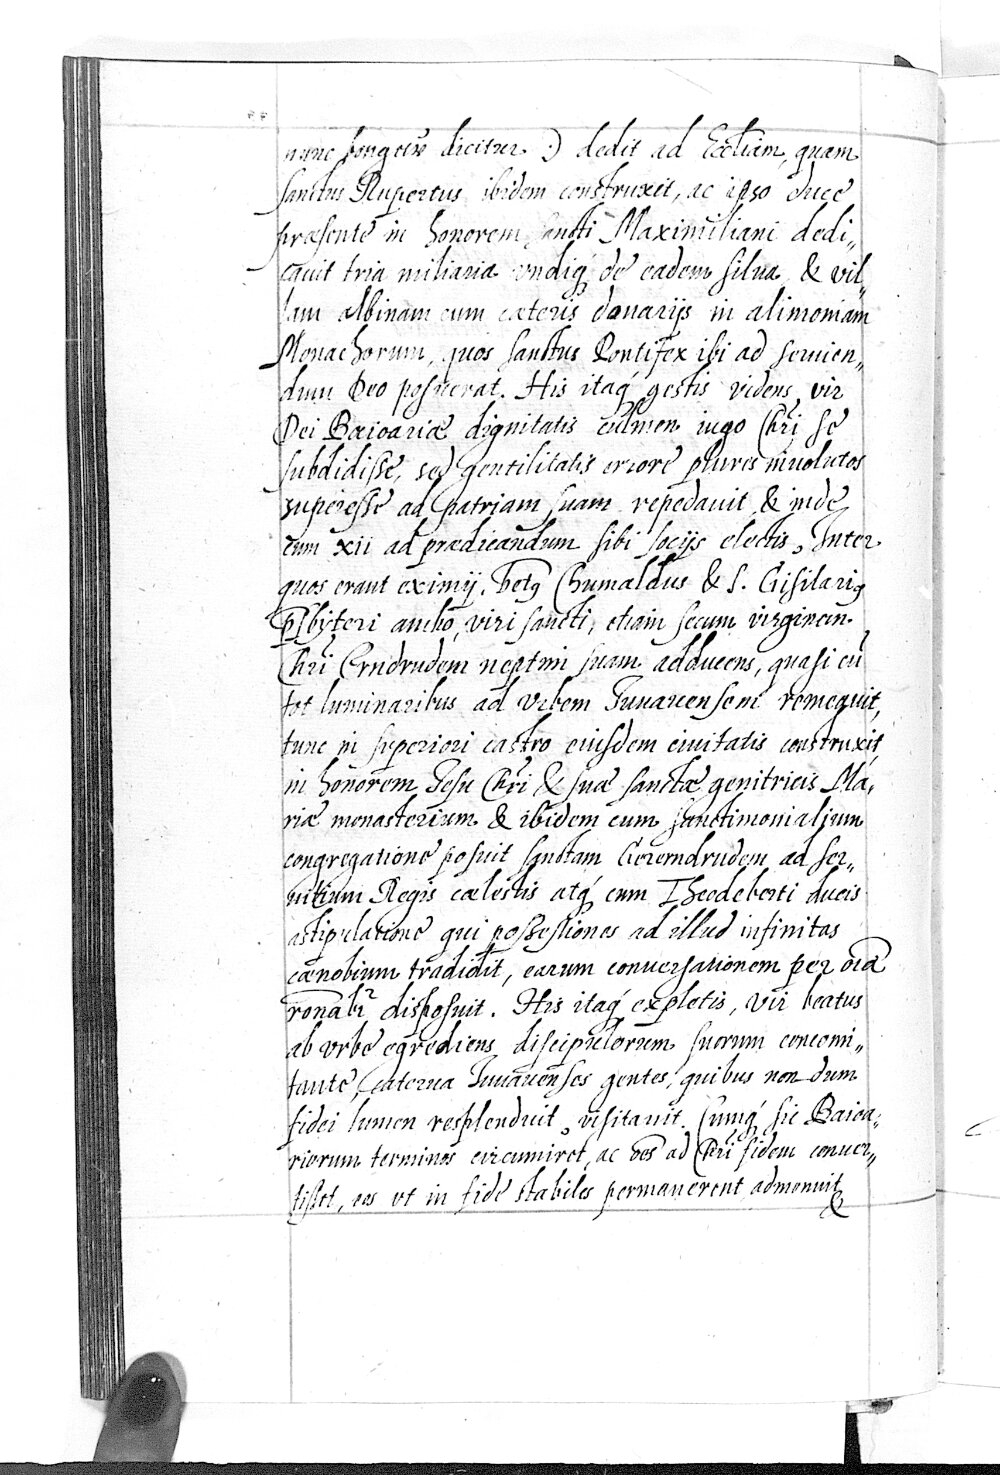 nunc bongotñ dicitur :) dedit ad Eccliam, quam
sanctus Rupertus ibidem construxit, ac ipso duce
præsente in honorem sancti Maximiliani dedi„
cauit tria miliaria vndiq́ de eadem silua & vil„
lam albinam cum cæteris donarijs in alimoniam
Monachorum, quos sanctus Pontifex ibi ad seruien„
dum Deo posuerat. His itaq́ gestis videns vir
Dei Baioariæ dignitatis culmen iugo Chr̃i se
subdidisse, sed gentilitatis errore plures inuolutos
superesse ad patriam suam repedauit & inde
cum xii ad prædicandum sibi socijs electis, Inter
quos erant eximij, Chunialdus & S. Gisilarius
p̃sbyteri ambo, viri sancti, etiam secum virginem
Chr̃i Erndrudem neptem suam adducens, quasi cũ
tot luminaribus ad Vrbem Iuuauensem remeauit,
tunc in superiori castro eiusdem ciuitatis construxit
in honorem Iesu Chr̃i & suæ sanctæ genitricis Ma„
riæ monasterium & ibidem cum sanctimonialium
congregatione posuit sanctam Gerendrudem ad ser„
uitium Regis cælestis atq́ cum Theodeberti ducis
astipulatione qui possessiones ad illud infinitas
cænobium tradidit, earum conuersationem per oĩa
ronabr̃ disposuit. His itaq́ expletis, vir beatus
ab vrbe egrediens discipulorum suorum concomi„
tante caterua Iuuauenses gentes, quibus non dum
fidei lumen resplenduit, visitauit. Cumq́ sic Baioa„
riorum terminos circumiret, ac oẽs ad Chr̃i fidem conuer„
tisset, eos vt in fide stabiles permanerent admonuit
&